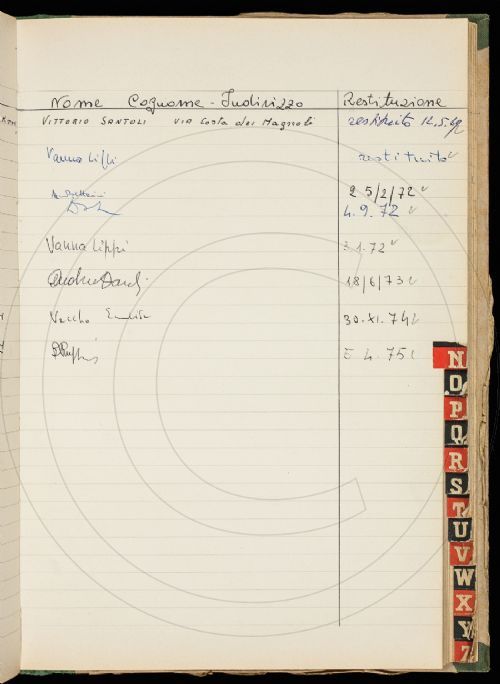 Nome Cognome - Indirizzo Restituzione
VITTORIO SANTOLI VIA Costa dei Magnoli restituito 12.5.
Vanna Lippi restituito
25/2/72
4.9.72
Vanna Lippi 3.1.72
Andrea 18/6/73
Vecchio 30.XI.74
4.75
N
O
P
Q
R
S
T
U
V
W
X
Y
Z